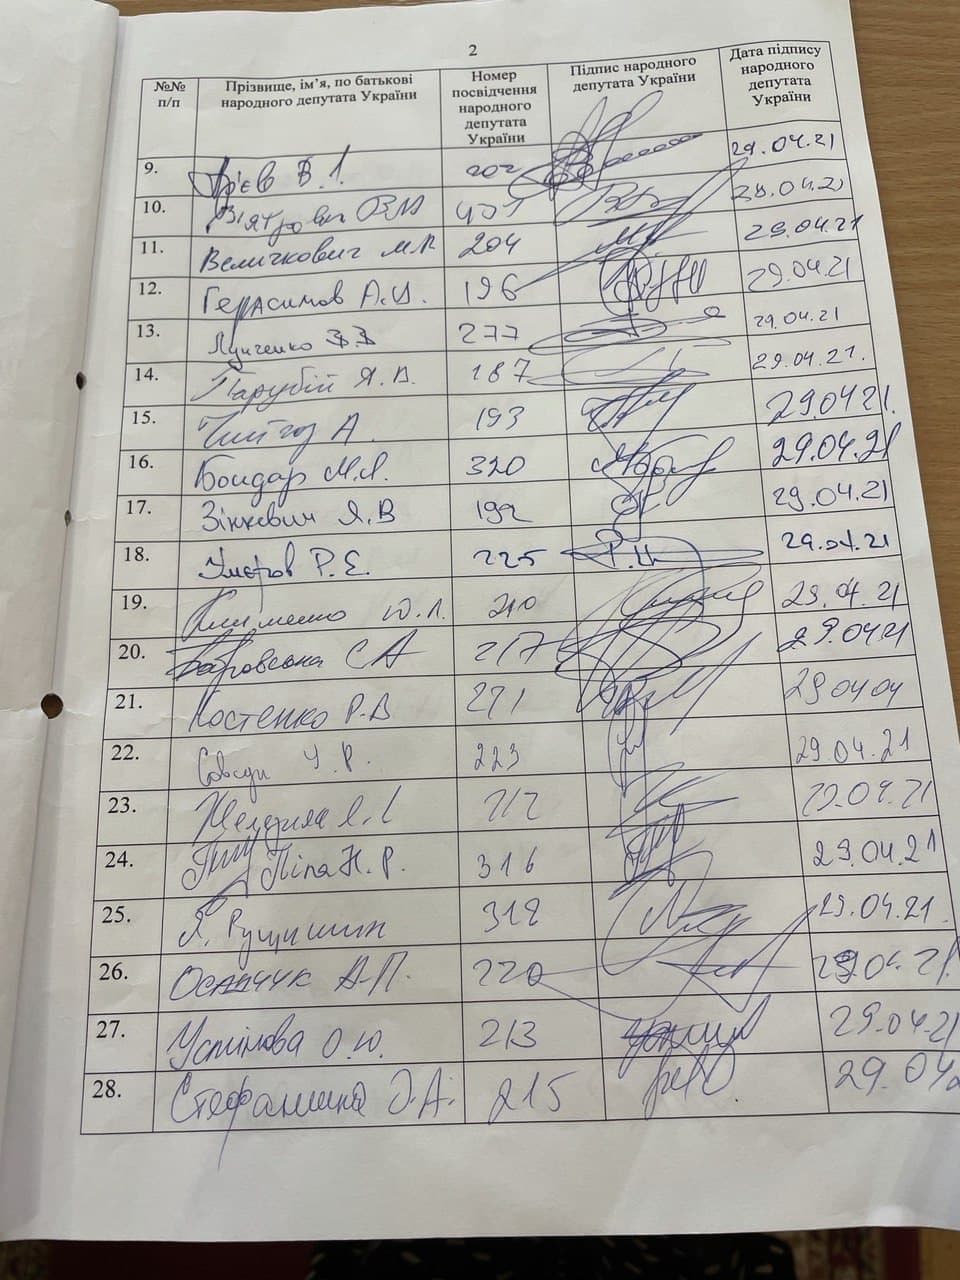 2
№№ п/п | Прізвище, ім’я, по батькові народного депутата України | Номер посвідчення народного депутата України | Підпис народного депутата України | Дата підпису народного депутата України
9. Ар'єв В.І. 202 29.04.21
10. В'ятрович В.М 401 28.04.21
11. Величкович М.Р 204 29.04.21
12. Герасимов А.И. 196 29.04.21
13. Лунченко 277 29.04.21
14. Парубій А.В. 187 29.04.21.
15. 193 29.04 21.
16. Бондар М.Л. 320 29.04.21
17. Зінкевич Я.В 192 29.04.21
18. Умєров Р.Е. 225 29.04.21
19. Клименко Ю.Л. 210 29.04.21
20. Боровська С А 217 29.04 21
21. Костенко Р.В 271 29 04 04
22. Совсун І.Р. 223 29.04.21
23. 212 29.04.21
24. Піпа Н.Р. 316 29.04.21
25. Я. Рущишин 318 29.04.21.
26. Осадчук А.П. 220 29.04.21
27. Устінова О.Ю. 213 29.04.21
28. Стефанишина О.А. 215 29.04.2